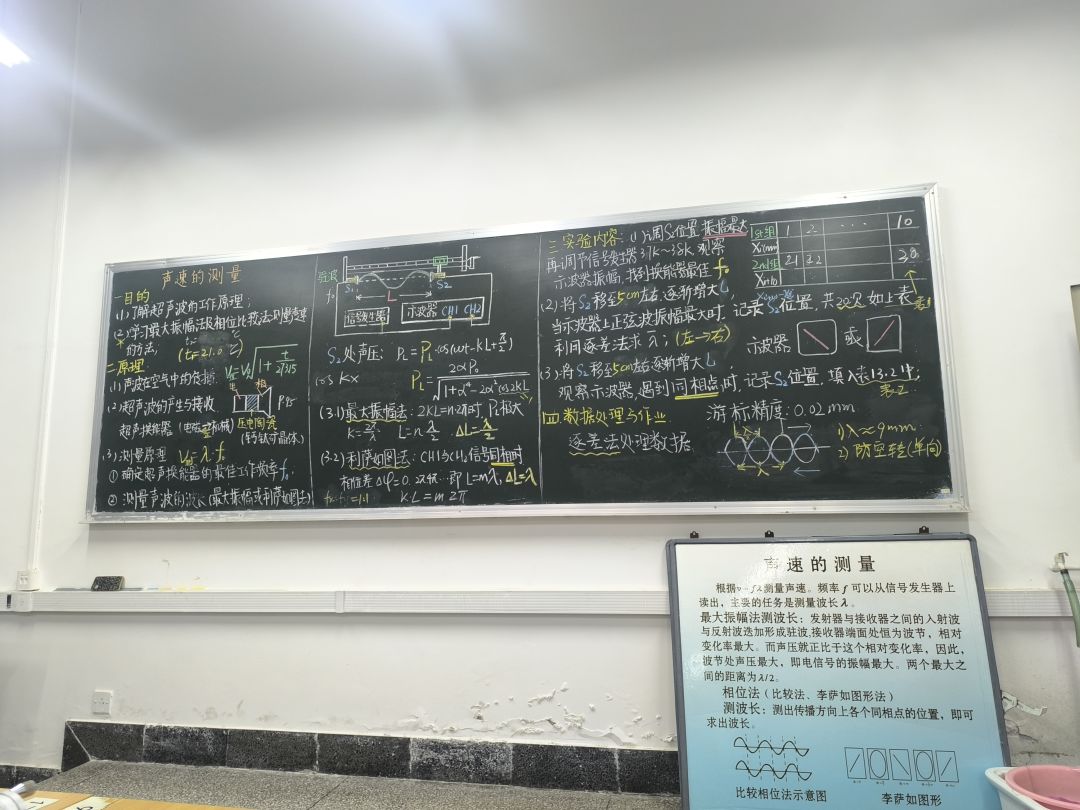 声速的测量
一目的
(1)了解超声波的工作原理;
(2)学习最大振幅法及相位比较法测量声速
的方法; (t₀=21.0℃)
二原理
(1)声波在空气中的传播
(2)超声波的产生与接收
超声换能器 压电陶瓷
(3)测量原理
①确定超声换能器的最佳工作频率f₀
②测量声波的波长(最大振幅或利萨如图法)
驻波
S₁ S₂
L
信号发生器 示波器 CH1 CH2
S₂处声压:
(3.1)最大振幅法: 2KL=n·2π时, P₂极大
K=2π/λ L=n λ/2 ΔL=λ/2
(3.2)利萨如图法: CH1与CH2信号同相时
相位差ΔΨ=0, 即L=mλ, ΔL=λ
K·L=m2π
三实验内容: (1)调S₂位置 振幅最大
再调节信号发生器 观察
示波器振幅, 找到换能器最佳f₀
(2)将S₂移至5cm左右, 逐渐增大L
当示波器上正弦波振幅最大时, 记录S₂位置, 共20次如上表
利用逐差法求λ; (左→右) 示波器 或
(3)将S₂移至5cm左右, 逐渐增大L
观察示波器, 遇到同相点时, 记录S₂位置, 填入表13.2中;
四数据处理与作业
逐差法处理数据
1st组 1 2 … 10
游标精度: 0.02mm
λ
1) λ≈9mm
2) 防空转(单向)
声速的测量
测量声速。频率f可以从信号发生器上
读出，主要的任务是测量波长λ。
最大振幅法测波长：发射器与接收器之间的入射波
与反射波迭加形成驻波,接收器端面处恒为波节，相对
变化率最大。而声压就正比于这个相对变化率，因此，
波节处声压最大，即电信号的振幅最大。两个最大之
间的距离为λ/2。
相位法（比较法、李萨如图形法）
测波长：测出传播方向上各个同相点的位置，即可
求出波长。
比较相位法示意图 李萨如图形